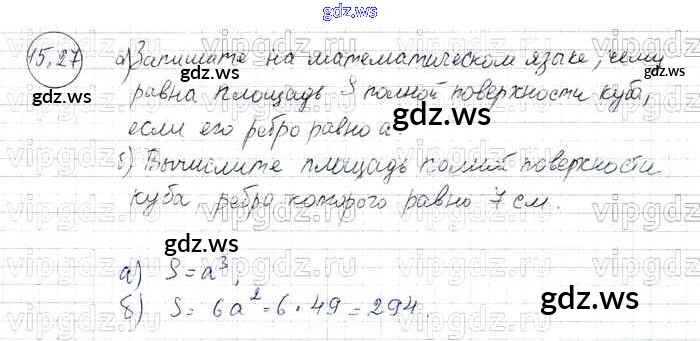 gdz.ws
15,27 а) Запишите на математическом языке, чему
равна площадь S полной поверхности куба,
gdz.ws
если его ребро равно a
б) Вычислите площадь полной поверхности
куба, ребро которого равно 7 см.
gdz.ws
gdz.ws
а) S = a³,
б) S = 6a² = 6 · 49 = 294.
gdz.ws
vipgdz.ru